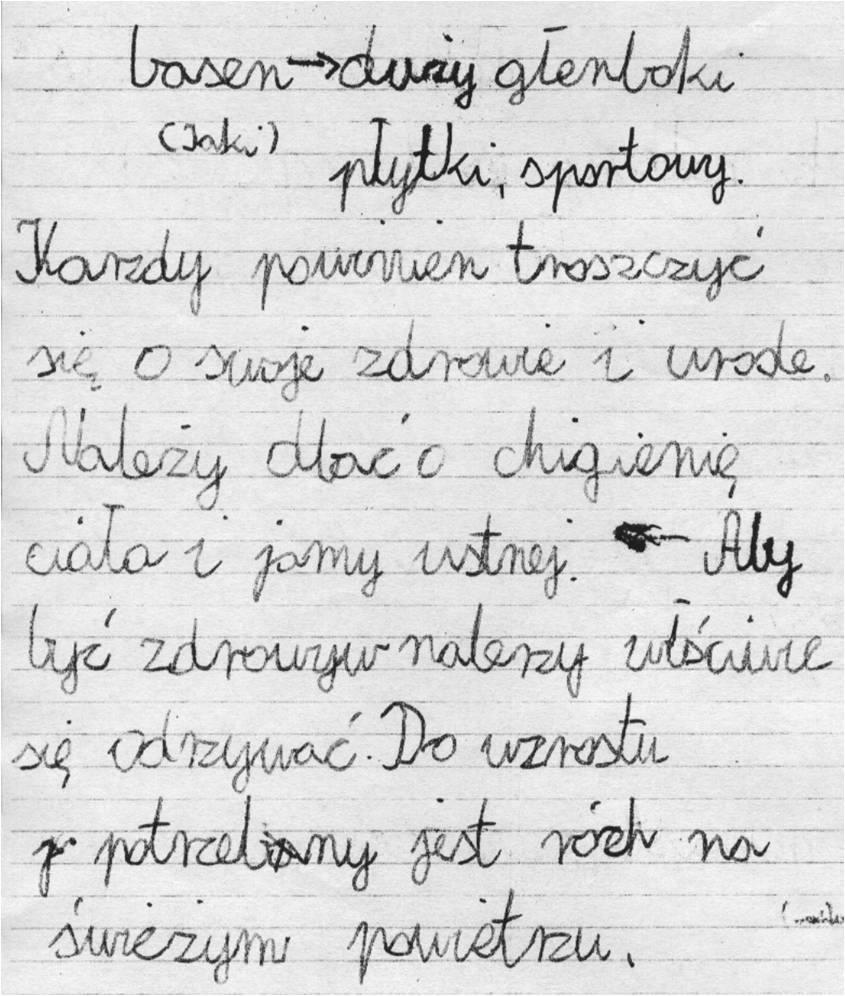 basen → duży głenboki
(Jaki)
płytki, sportowy.
Karzdy powinien troszczyć
się o swoje zdrowie i urode.
Należy dbać o chigienię
ciała i jamy ustnej. ← Aby
być zdrowyw nalerzy włściwie
się odrzywać. Do wzrostu
potrzebny jest róch na
świeżym powietrzu.